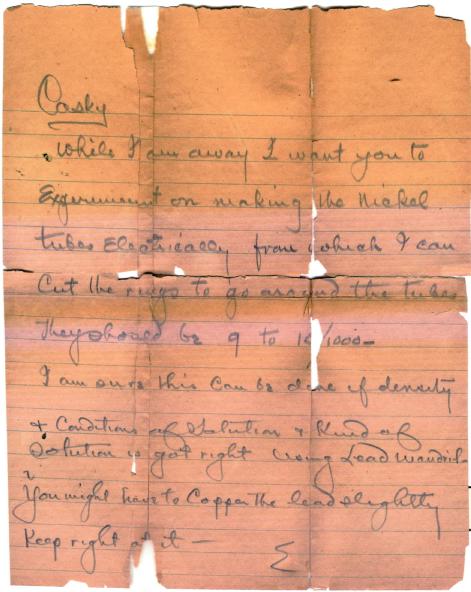 Casky
While I am away I want you to
Experiment on making the Nickel
tubes Electrically from which I can
Cut the rings to go around the tubes
They should be 9 to 10/1000 –
I am sure this Can be done if density
& Conditions of Solution & Kind of
Solution is got right using Lead
You might have to Copper the lead slightly
Keep right at it —
E